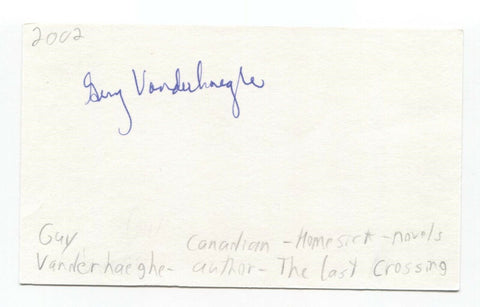 2002
Guy Vanderhaeghe
Guy Canadian - Homesick - novels
Vanderhaeghe - author - The Last Crossing